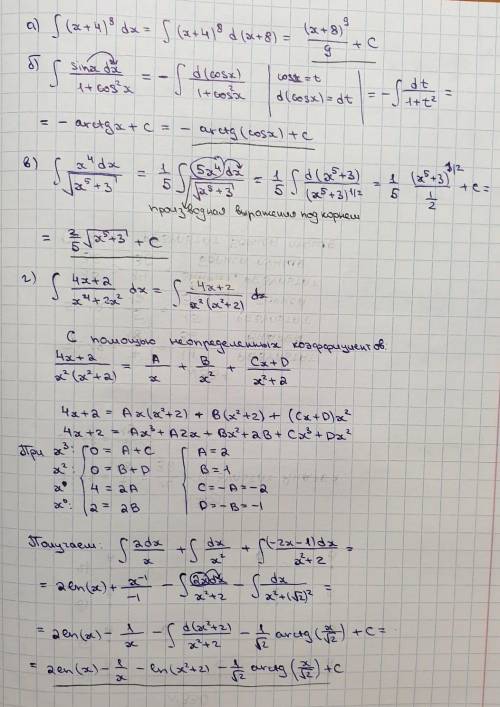 а) ∫ (x+4)⁸ dx = ∫ (x+4)⁸ d(x+8) = (x+8)⁹/9 + C
б) ∫ sinx dx/(1+cos²x) = -∫ d(cosx)/(1+cos²x) | cosx = t d(cosx) = dt | = -∫ dt/(1+t²) =
= - arctgx + c = - arctg(cosx) + c
в) ∫ x⁴dx/√(x⁵+3) = 1/5 ∫ (5x⁴)dx/√(x⁵+3) = 1/5 ∫ d(x⁵+3)/(x⁵+3)^1/2 = 1/5 (x⁵+3)^1/2/(1/2) + c =
производная выражения под корнем
= 2/5 √(x⁵+3) + C
г) ∫ (4x+2)/(x⁴+2x²) dx = ∫ (4x+2)/(x²(x²+2)) dx
С помощью неопределенных коэффициентов.
(4x+2)/(x²(x²+2)) = A/x + B/x² + (Cx+D)/(x²+2)
4x+2 = Ax(x²+2) + B(x²+2) + (Cx+D)x²
4x+2 = Ax³+A2x+Bx²+2B+Cx³+Dx²
При x³: 0 = A+C A = 2
x²: 0 = B+D B = 1
4 = 2A C = -A = -2
x⁰: 2 = 2B D = -B = -1
Получаем: ∫ 2dx/x + ∫ dx/x² + ∫ (-2x-1)dx/(x²+2) =
= 2ln(x) + x⁻¹/-1 - ∫ 2xdx/(x²+2) - ∫ dx/(x²+(√2)²) =
= 2ln(x) - 1/x - ∫ d(x²+2)/(x²+2) - 1/√2 arctg(x/√2) + C =
= 2ln(x) - 1/x - ln(x²+2) - 1/√2 arctg(x/√2) + C